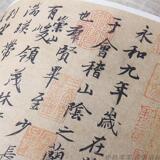 永和九年歲在
于會稽山陰之蘭
也羣賢畢至少長
有崇山峻領茂林